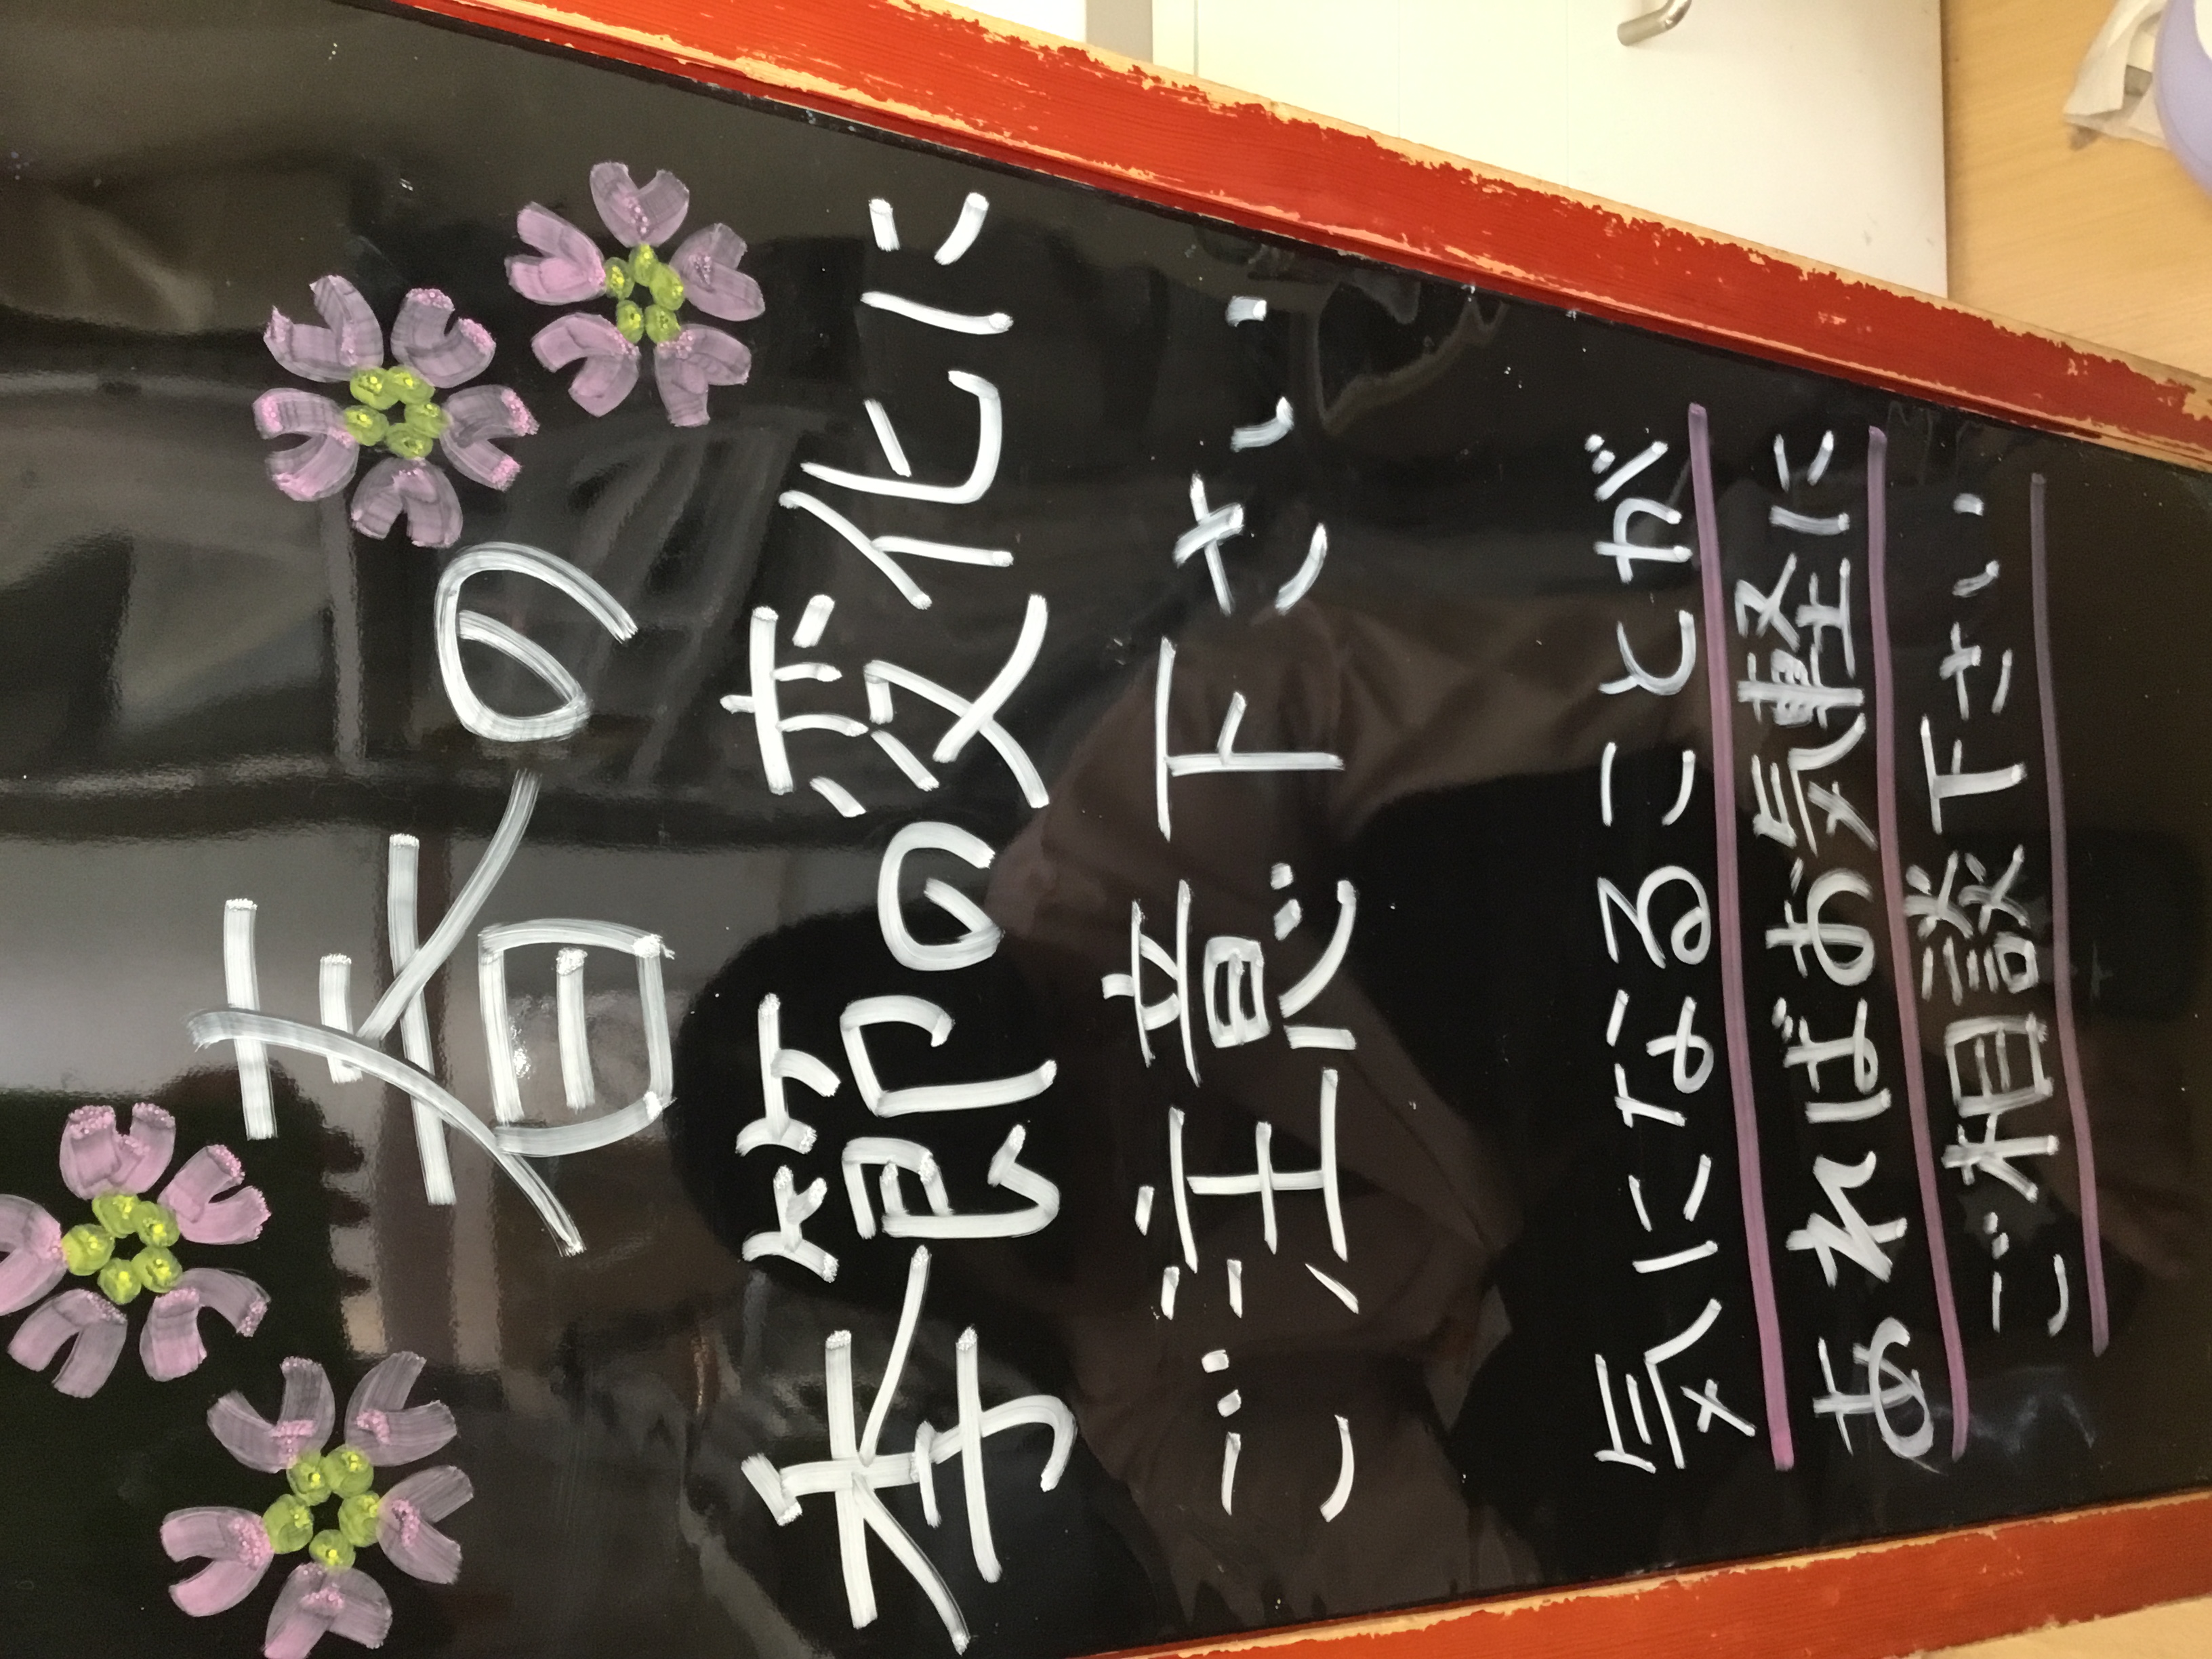 春の
季節の変化に
ご注意下さい
気になることが
あればお気軽に
ご相談下さい